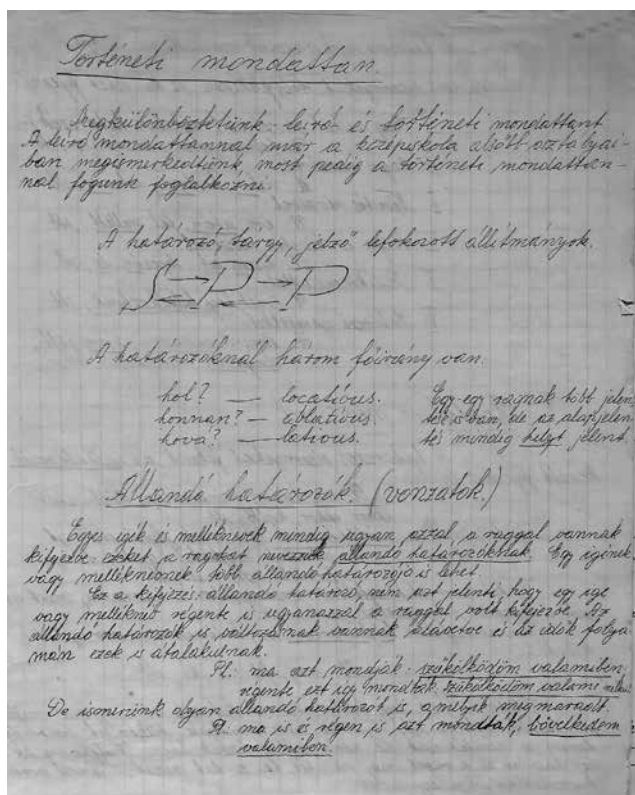 Történeti mondattan.
Megkülönböztetünk leíró- és történeti mondattant.
A leíró mondattannal már a középiskola alsóbb osztályai-
ban megismerkedtünk, most pedig a történeti mondattan-
nal fogunk foglalkozni.
A határozó, tárgy, jelző lefokozott állítmányok.
S P P
A határozóknál három főirány van.
hol? — locatívus. Egy-egy ragnak több jelen-
honnan? — ablatívus. tése is van, de az alapjelen-
hová? — latívus. tés mindig helyt jelent.
Állandó határozók. (vonzatok.)
Egyes igék és melléknevek mindig ugyan azzal a raggal vannak
kifejezve ezeket a ragokat nevezzük állandó határozóknak. Egy igének
vagy melléknévnek több állandó határozója is lehet.
Ez a kifejezés állandó határozó, nem azt jelenti, hogy egy ige
vagy melléknév régente is ugyanazzal a raggal volt kifejezve. Az
állandó határozók is változásnak vannak alávetve és az idők folya-
mán ezek is átalakulnak.
Pl.: ma azt mondják: szűkölködöm valamiben
régente ezt így mondták szűkölködöm valami
De ismerünk olyan állandó határozót is, amelyek megmaradt.
Pl. ma is és régen is azt mondták, bővelkedem
valamiben.